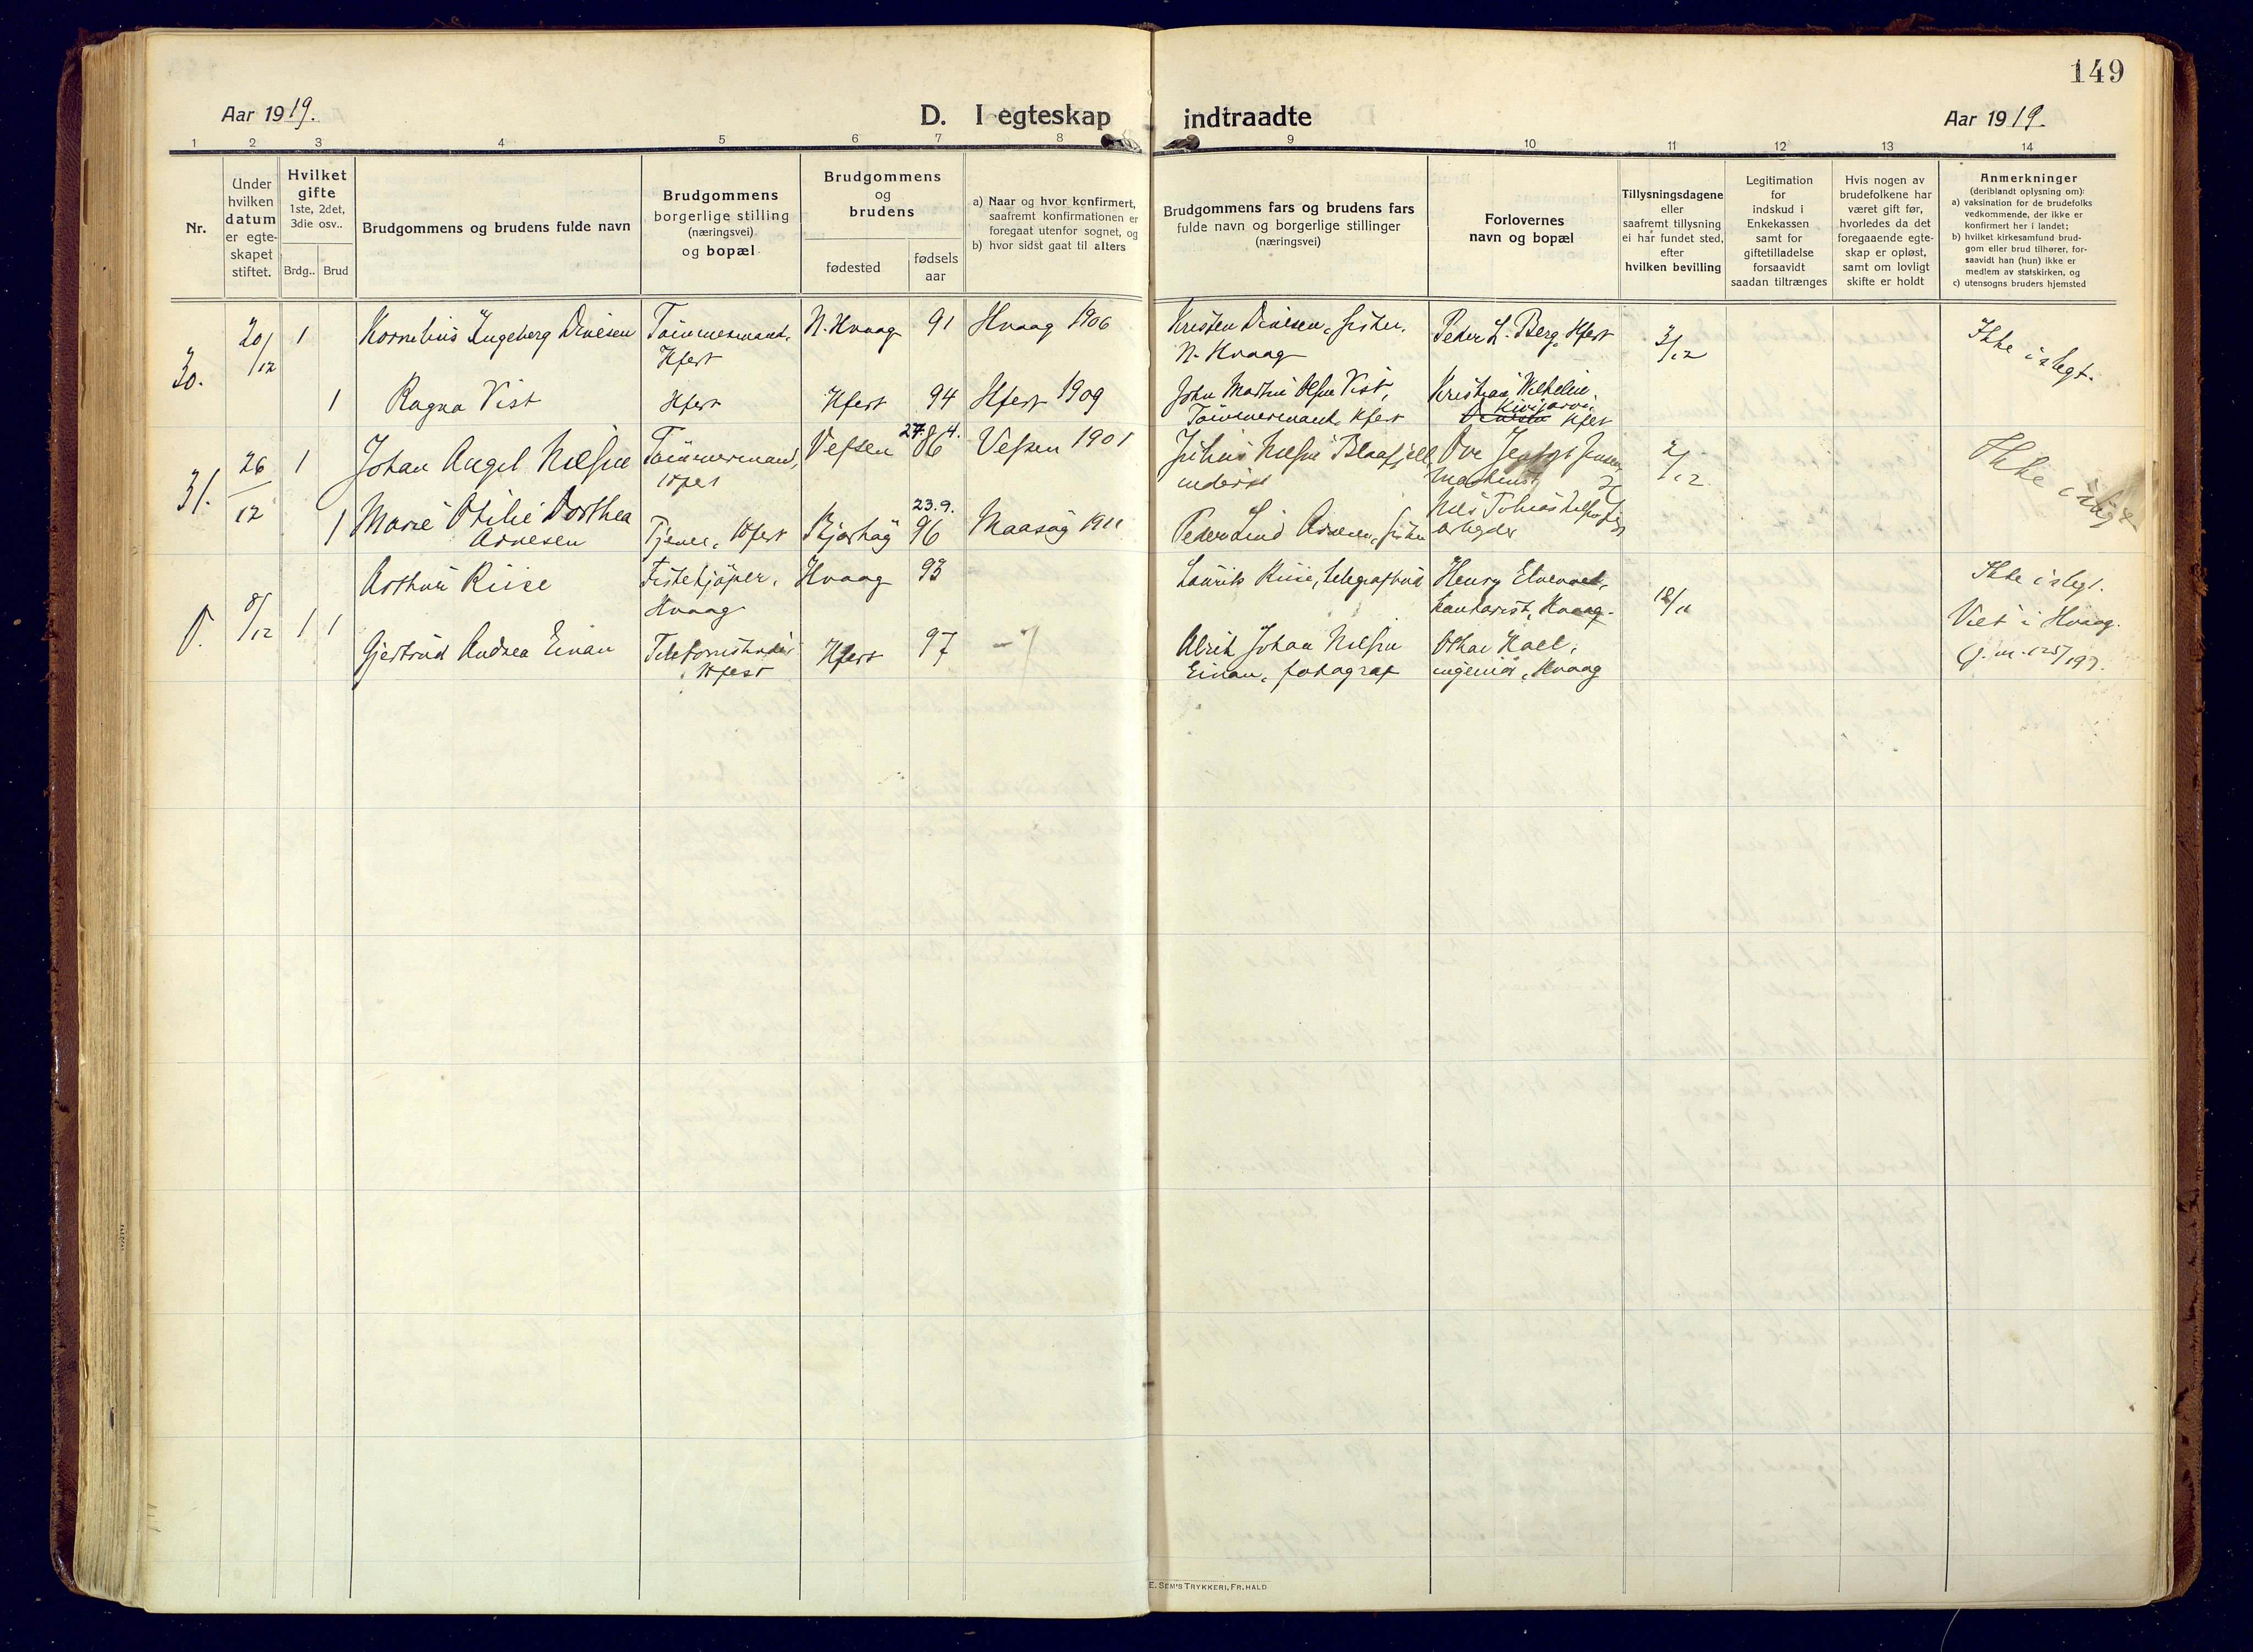 149
Aar 1919.
D. I egteskap indtraadte
Aar 1919.
1 2 3 4 5 6 7 8 9 10 11 12 13 14
Nr.
Under
hvilken
datum
er egte-
skapet
stiftet.
Hvilket
gifte
1ste, 2det,
3die osv..
Brdg.. Brud
Brudgommens og brudens fulde navn
Brudgommens
borgerlige stilling
(næringsvei)
og bopæl
Brudgommens
og
brudens
fødested
fødsels
aar
a) Naar og hvor konfirmert,
saafremt konfirmationen er
foregaat utenfor sognet, og
b) hvor sidst gaat til alters
Brudgommens fars og brudens fars
fulde navn og borgerlige stillinger
(næringsvei)
Forlovernes
navn og bopæl
Tillysningsdagene
eller
saafremt tillysning
ei har fundet sted,
efter
hvilken bevilling
Legitimation
for
indskud i
Enkekassen
samt for
giftetilladelse
forsaavidt
saadan tiltrænges
Hvis nogen av
brudefolkene har
været gift før,
hvorledes da det
foregaaende egte-
skap er opløst,
samt om lovligt
skifte er holdt
Anmerkninger
(deriblandt oplysning om):
a) vaksination for de brudefolks
vedkommende, der ikke er
konfirmert her i landet;
b) hvilket kirkesamfund brud-
gom eller brud tilhører, for-
saavidt han (hun) ikke er
medlem av statskirken, og
c) utensogns bruders hjemsted
30.
20/12
1
Kornelius Ingeberg Divesen
Tømmermand,
Hfest
N. Hvaag
91
Hvaag 1906
Kristen Divesen, fisker,
N. Hvaag
Peder L. Berg, Hfest
3/12
Ikke i slegt.
1
Ragna Vist
Hfest
Hfest
94
Hfest 1909
John Martin Olsen Vist,
Tømmermand, Hfest
Kristian Vilhelm
Kivijarvi,
Hfest
31.
26/12
1
Johan Angel Nilsen
Tømmermand,
Hfest
Vefsen
27. 4.
86
Vefsen 1901
Julius Nilsen Blaafjell
Ove Jensen
Maskinist
2/12
Ikke i slegt
1
Marie Otilie Dorthea
Arnesen
Tjener, Hfest
23.9.
96
Maasøy 1911
Peder Lind Arnesen, fisker
Nils Tobias Nilsen
arbeider
8/12
1 1
Arthur Riise
Fiskekjøper,
Hvaag
Hvaag
93
Laurits Riise, telegrafbud
Henry Elvevoll,
kontorist, Hvaag.
12/11
Ikke i slegt.
Viet i Hvaag.
Gjertrud Andrea Einan
Telefonistinde,
Hfest
Hfest
97
Alrik Johan Nilsen
Einan, fotograf
Othar Hall,
ingeniør, Hvaag
E. SEM'S TRYKKERI, FR. HALD